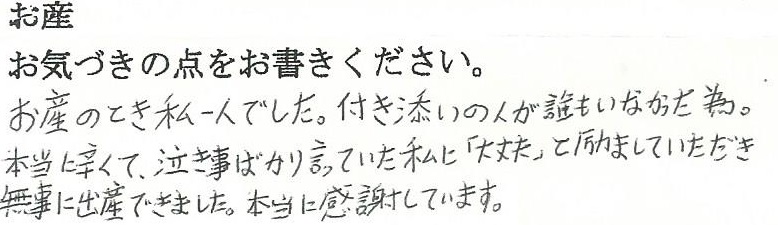 お産
お気づきの点をお書きください。
お産のとき私一人でした。付き添いの人が誰もいなかった為。
本当に辛くて、泣き事ばかり言っていた私に「大丈夫」と励ましていただき
無事に出産できました。本当に感謝しています。